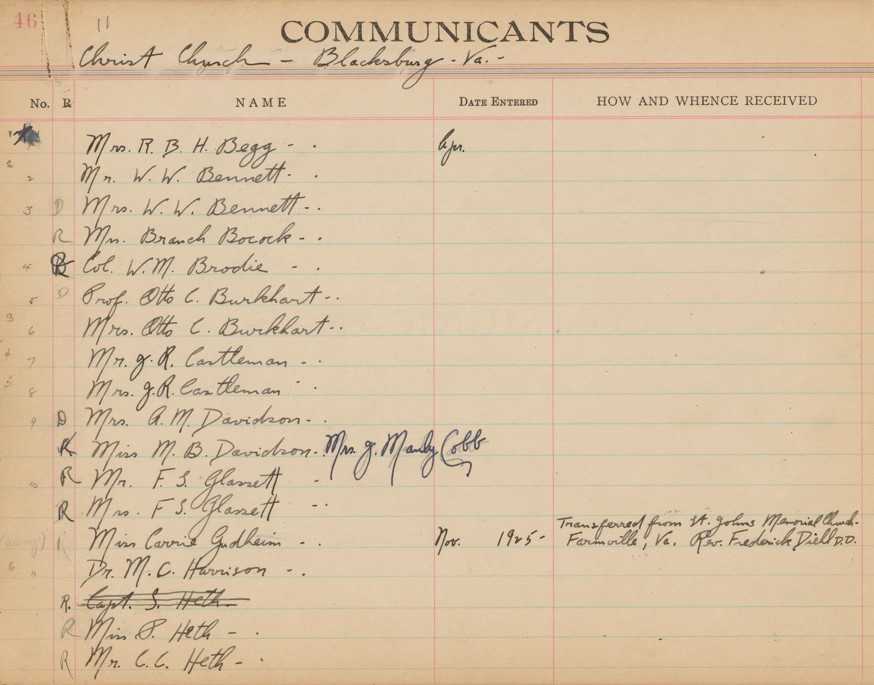 46 11 COMMUNICANTS
Christ Church - Blacksburg - Va. -
No. R NAME DATE ENTERED HOW AND WHENCE RECEIVED
Mrs. R. B. H. Begg - . Apr.
2 2 Mr. W. W. Bennett - .
3 D Mrs. W. W. Bennett - .
R Mrs. Branch Bocock - .
4 R Col. W. M. Brodie - .
5 D Prof. Otto C. Burkhart - .
3 6 Mrs. Otto C. Burkhart - .
4 7 Mr. J. R. Castleman - .
5 8 Mrs. J. R. Castleman - .
9 D Mrs. A. M. Davidson - .
R Miss M. B. Davidson - . Mrs. J. Manly Cobb
10 R Mr. F. S. Glassett - .
R Mrs. F S. Glassett - .
Transferred from St. Johns Memorial Church -
(away) R Miss Carrie Gudheim - . Nov. 1925 - Farmville, Va. Rev. Frederick Diehl D.D.
6 " Dr. M. C. Harrison - .
R. Capt. S. Heth -
R Miss P. Heth - .
R Mr. C. C. Heth - .